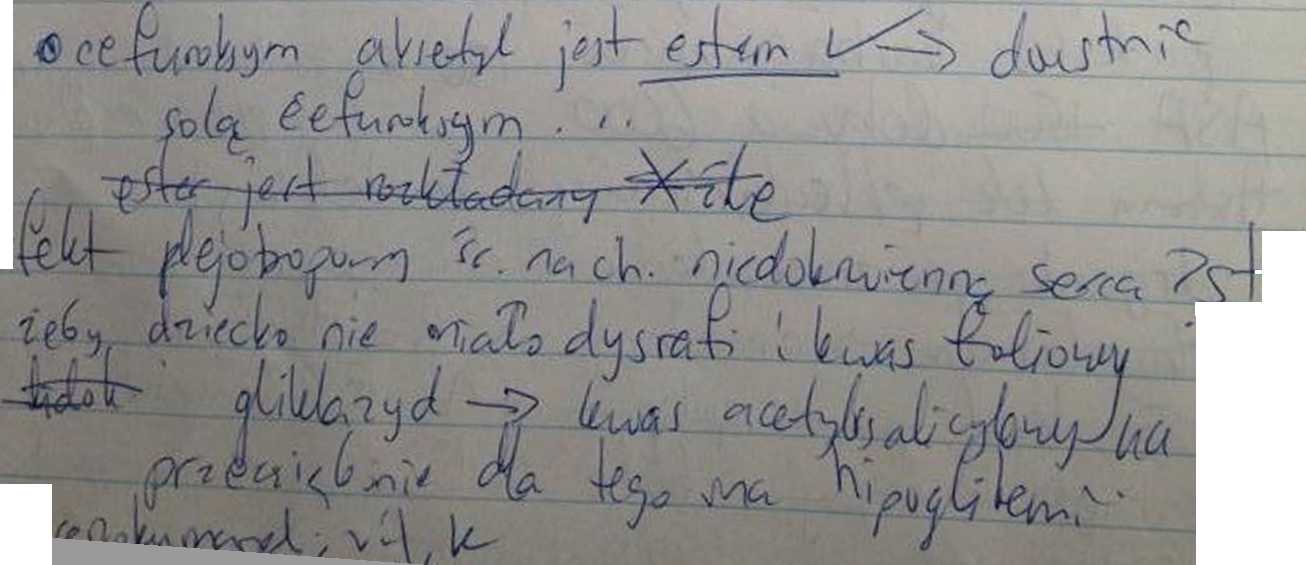 cefuroksym aksetyl jest estrem → doustnie
solą cefuroksym...
ester jest rozkładany źle
fekt plejotropowy śr. na ch. niedokrwienną serca ? st
żeby dziecko nie miało dysrafi: kwas foliowy
gliklazyd → kwas acetylosalicylowy na
przeziębnie dla tego ma hipoglikemi
: vit, k